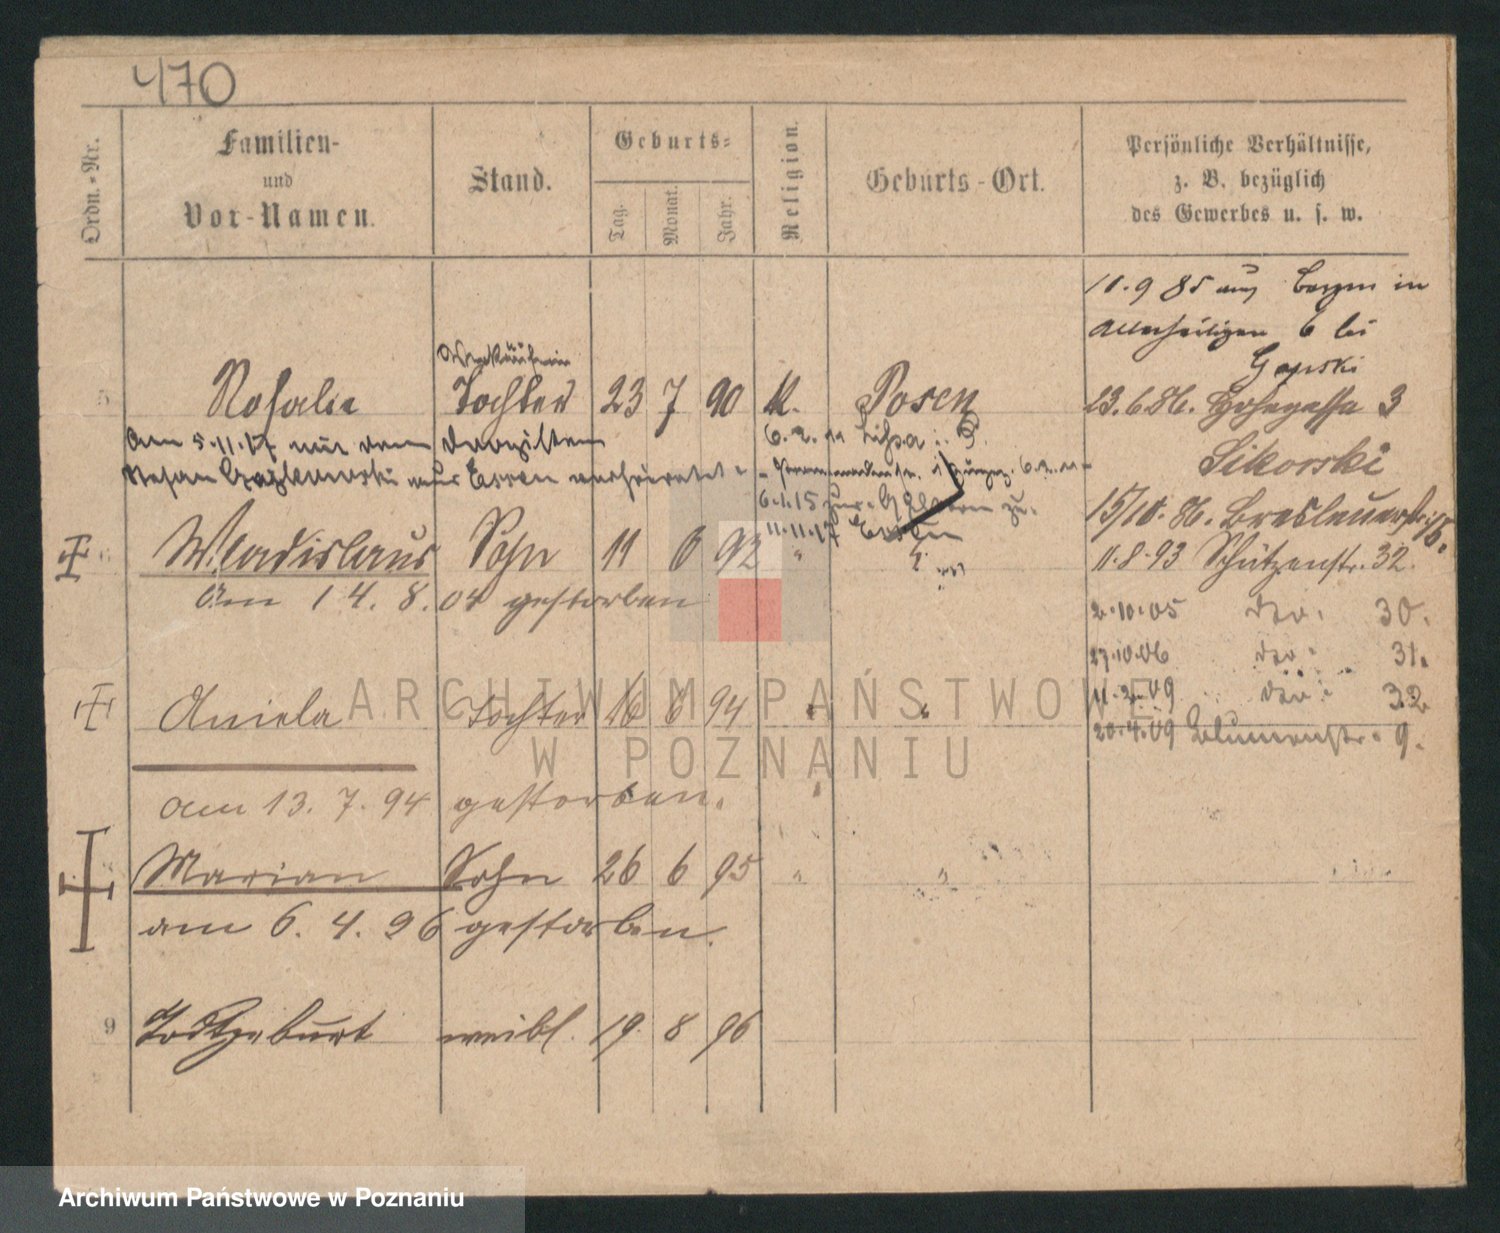 470
Ordn.-Nr.
Familien-
und
Vor-Namen.
Stand.
Geburts-
Tag.
Monat.
Jahr.
Religion.
Geburts-Ort.
Persönliche Verhältnisse,
z. B. bezüglich
des Gewerbes u. s. w.
11.9 85 aus in
Allerheiligen 6 bei
Gorski
Verkäuferin
5 Rosalie Tochter 23 7 90 K. Posen
23.6.86. Hohegasse 3
Sikorski
Am 5.11.17 mit dem Drogisten
Stefan aus Essen verheiratet
6.2.11 Lissa i. P.
6.2.11
6.1.15 zur. Eltern zu.
11.11.17 Essen
15/10. 86. Breslauerstr.
Wladislaus Sohn 11 6 92 "
11.8.93 Schützenstr. 32.
Am 14. 8. 04 gestorben
2.10.05 do. 30.
27.10.06 do. 31.
Aniela Tochter 16 6 94 " "
11.2.09 do. 32
20.4.09 Blumenstr. 9.
am 13. 7. 94 gestorben.
Marian Sohn 26 6 95 " "
am 6. 4. 96 gestorben.
9 Todtgeburt weibl. 19. 8 96
ARCHIWUM PAŃSTWOWE
W POZNANIU
Archiwum Państwowe w Poznaniu